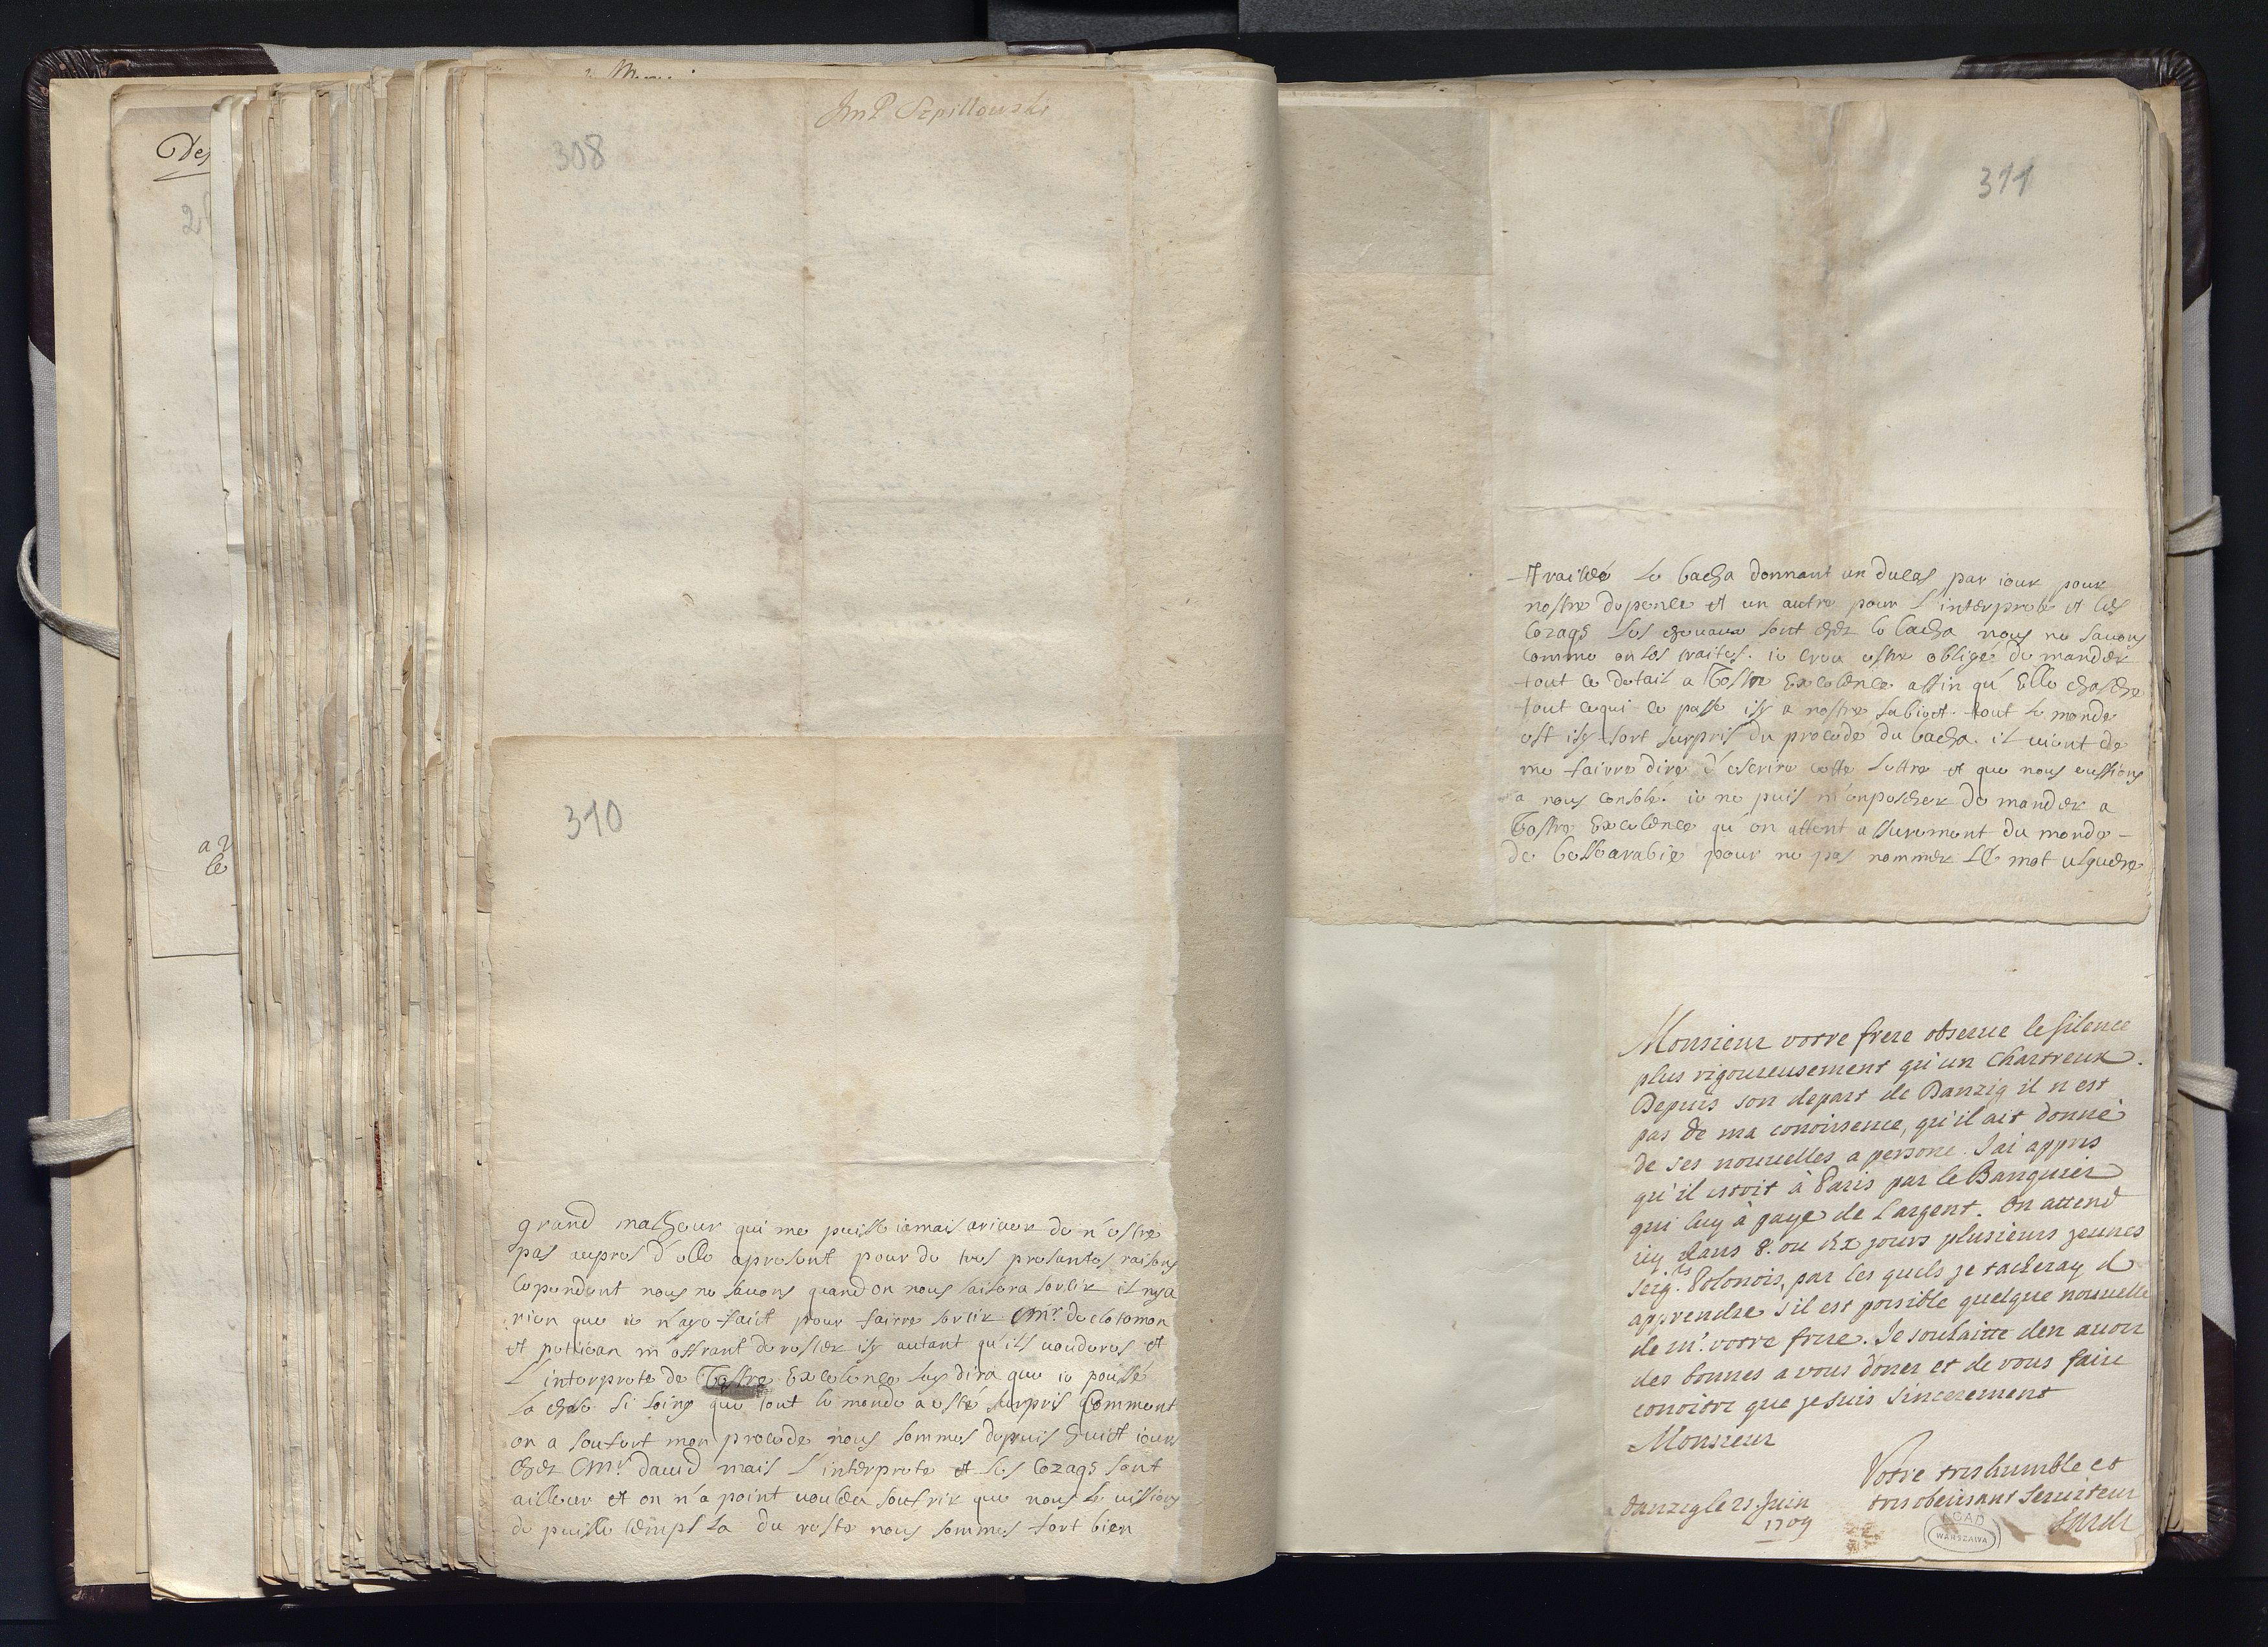 JmP Szpillowski
308
310
grand malheur qui me puisse iamais ariuer de n'estre
pas aupres d'elle apresent pour de tres presantes raisons
cependent nous ne sauons quand on nous laisera sortir il nya
rien que ie n'aye fait pour fairre sortir Mr.
et m'offrant de rester isy autant qu'ils vouderes et
L'interprete de Vostre Excelence luy dira que ie poussé
la chose si loing que tout le monde a esté surpris Comment
on a soufert mon procede nous sommes depuis huict iours
chez Mr. dauid mais L'interprete et les Cozaqs sont
ailleur et on n'a point voulu soufrir que nous le vissions
de puisse temps la du reste nous sommes fort bien
311
traites Le bacha donnant un ducas par iour pour
nostre depence et un autre pour L'interprete et les
Cozaqs les chevaux sont chez le bacha nous ne sauons
comme on les traites. ie creu estre obligé de mander
tout ce detail a Vostre Excelence affin qu'Elle
tout cequi ce passe isy a nostre subiect. tout le monde
est isy fort surpris du procede du bacha. il vient de
me fairre dire d'escrire cette lettre et que nous eussions
a nous consolé. ie ne puis m'enpescher de mander a
Vostre Excelence qu'on attent assurement du monde -
de bessarabie pour ne pas nommer LE mot
Monsieur votre frere obserue le silence
plus rigoureusement qu'un Chartreux.
Depuis son depart de Danzig il n est
pas de ma conoissence, qu'il ait donné
de ses nouuelles a persone. J'ai appris
qu'il estoit à Paris par le Banquier
qui luy à payé de Largent. On attend
icy dans 8. ou dix jours plusieurs jeunes
seig.rs Polonois, par les quels je tacheray d
apprendre s'il est possible quelque nouuelle
de mr. votre frere. Je souhaitte den auoir
des bonnes a vous doner et de vous faire
conoitre que je suis sincerement
Monsieur
Votre tres humble et
tres obeissant Seruiteur
danzig le 21. Juin
1709
AGAD
WARSZAWA